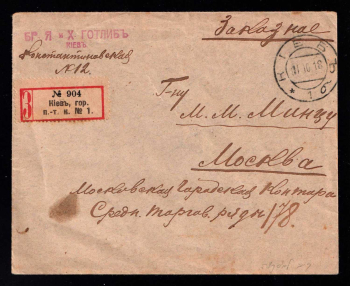 Заказное
БР. Я и Х ГОТЛИБЪ
КІЕВЪ
Константиновская
№ 12.
КІЕВЪ
1 б
З
№ 904
Кіевъ, гор.
п.-т. к. № 1.
Г-ну
М. М. Минцу
Москва
Московская Городская Контора
Средн. торгов. ряды 178.